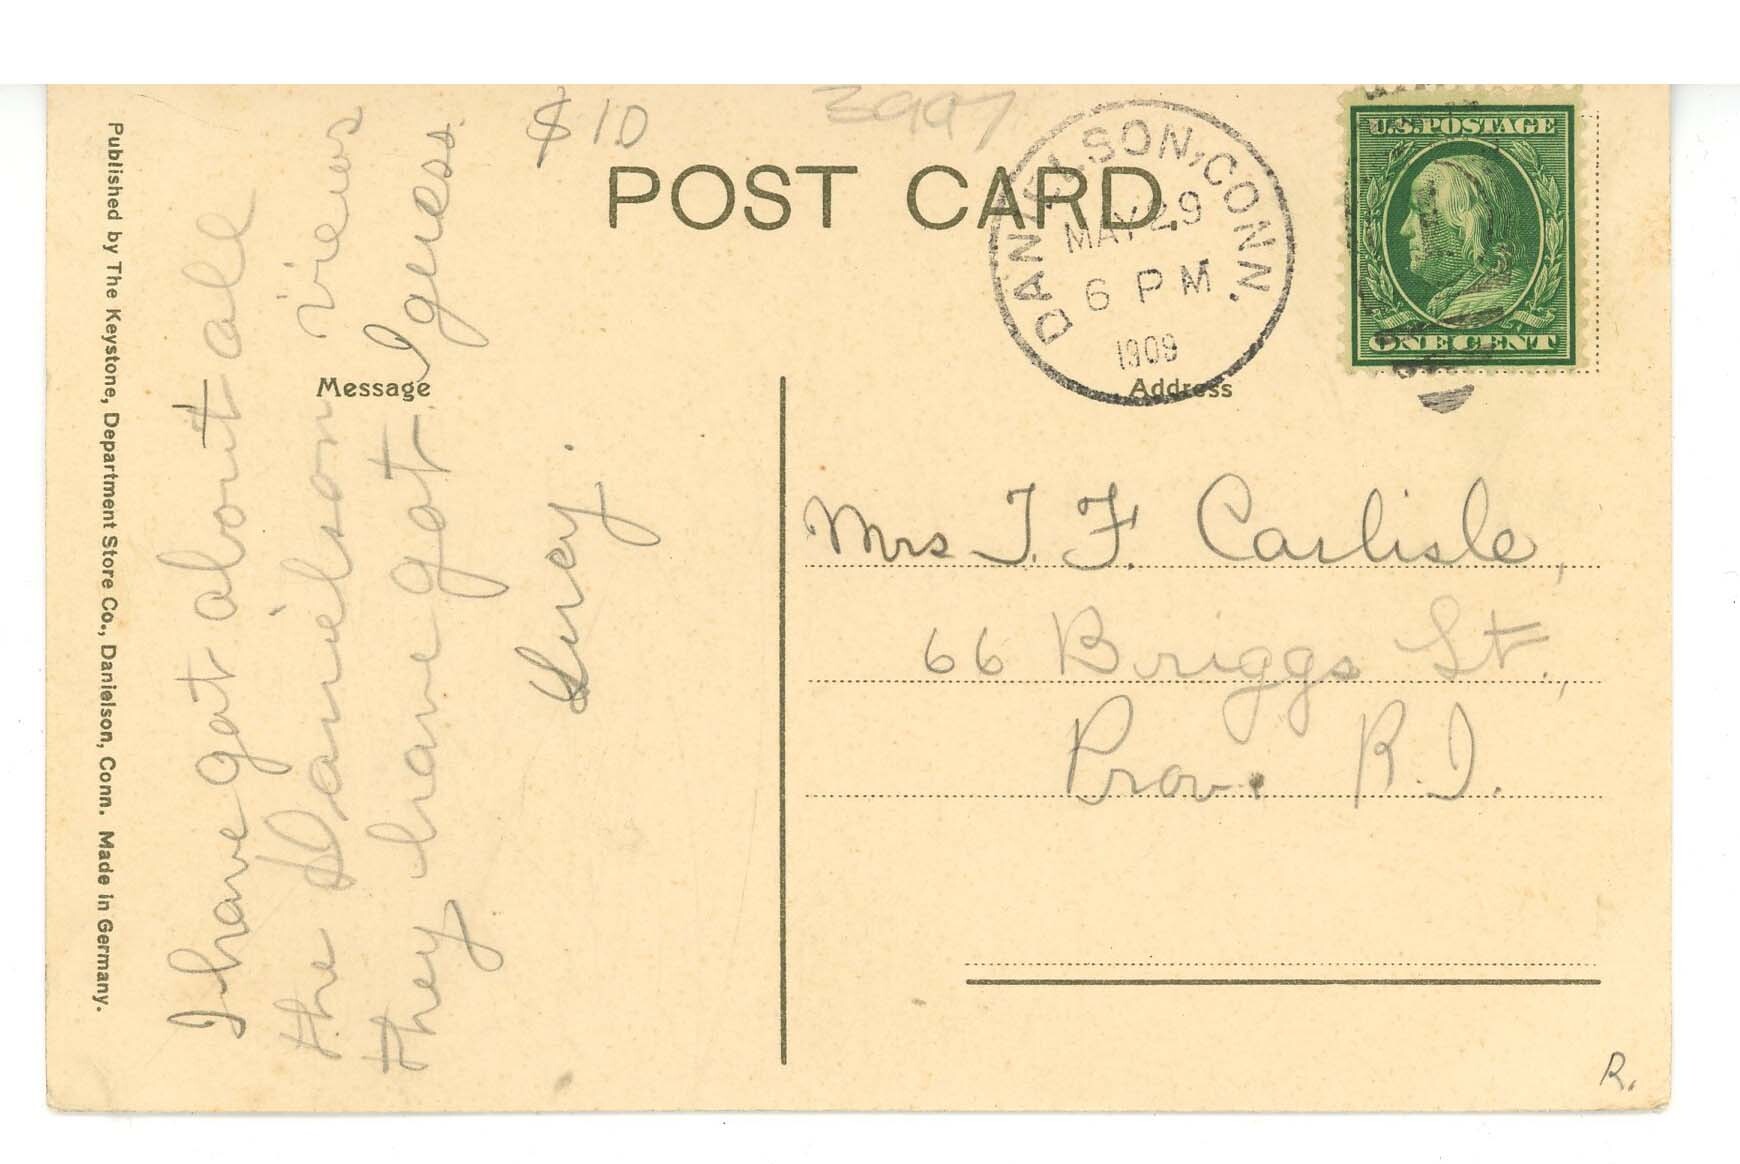 $10
3997
POST CARD.
DANIELSON, CONN.
MAY 29
6 PM
1909
U.S. POSTAGE
ONE CENT
Message
Address
I have got about all
the Danielson views
they have got I guess.
Mrs J. F. Carlisle,
66 Briggs St.,
Prov. R.I.
Published by The Keystone, Department Store Co., Danielson, Conn. Made in Germany.
R.